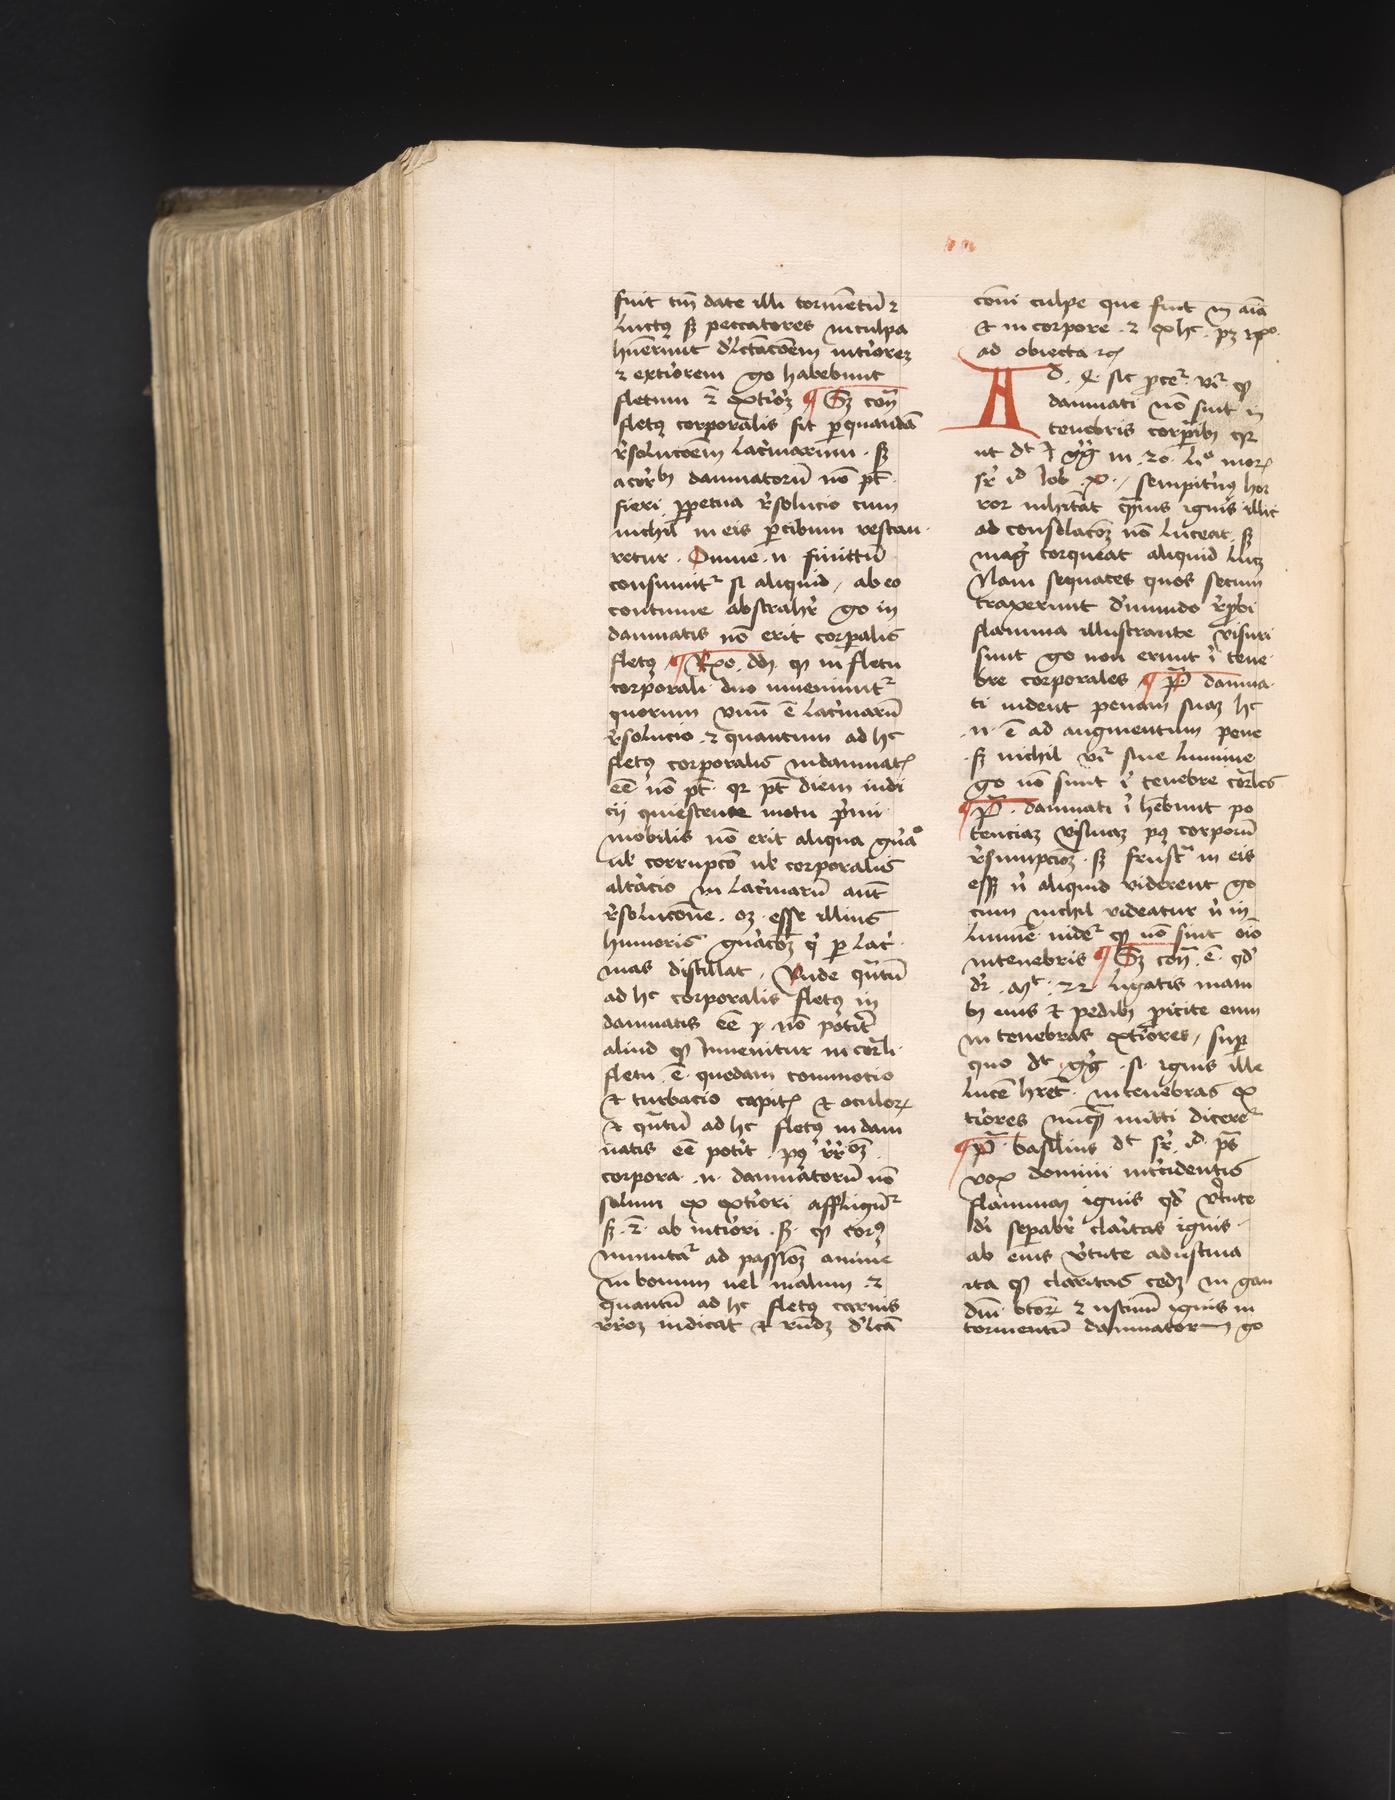 fuit tm̄ date illi tormētū ⁊
luctꝰ sꝫ peccatores in culpa
hn̄erūnt dꝉctac̄oem int̓iorez
⁊ ext̓iorem go habebunt
fletum ⁊̄ ext̓ioꝫ ¶ Sꝫ con̄
fletꝰ corporalis fit ꝑ quandā
r̓soluc̄oem lac̓marum · sꝫ
a cor̓bꝫ damnatorū nō pt̄
fieri ꝑpetua r̓solucio cum
nichil in eis ꝑ cibum restau
retur · Omne · n · finittū
consumit᷑ si aliquid / ab eo
continue abstrahr̓ go in
damnatis nō erit corꝑalis
fletꝰ ¶ Rxo dd̄ ꝙ in fletu
corporali duo inueniunt᷑
quorum vnū ē lac̓marū
r̓solucio · ⁊ quantum ad hc
fletꝰ corporalis in damnat̄
eē nō pt̄ · qꝛ pt̄ diem iudi
cij quiescente motu p̓mi
mobilis nō erit aliqua gn̓aͦ
uꝉ corrupc̄o uꝉ corporalis
alt̓acio in lac̓marū aūt
r̓soluc̄one · oꝫ · esse illius
humoris gn̓ac̄oꝫ q̓ ꝑ lac̓
mas distillat · Vnde qn̄tū
ad hc corporalis fletꝰ in
damnatis eē nō pot̓it
aliud ꝙ Inuenitur in cor̄li
fletu ē · quedam commotio
et turbacio capit̄ et oculoꝝ
et qn̄tū ad hc fletꝰ in dam
natis eē pot̓it · pꝰ rr̓oꝫ
corpora · n · damnatorū nō
solum ex ext̓iori affligūt᷑
sꝫ · ⁊̄ · ab int̓iori · sꝫ · ꝙ corꝰ
inmutat᷑ ad passioꝫ anime
in bonum uel malum · ⁊
quantū ad hc fletꝰ carnis
rr̓oꝫ indicat et rn̄dꝫ dꝉcā
com̄i culpe que fuit in aīa
et in corpore · ⁊ ex hc · pꝫ rxo
ad obiecta ⁊c̄
Ad · q̄ · sic ꝓcet᷑ · vr̓ ꝙ
damnati nō sint in
tenebris corꝑalibꝫ qꝛ
ut dt gg̓ in · 20 · liͦ moꝝ
sr̓ id̄ Iob · x · / sempit̓nꝰ hor
ror inhitāt qm̄uis ignis illic
ad consolac̄oꝫ nō luceat sꝫ
mag̓ torqueat aliquid lucꝫ
Nam sequaces quos secum
traxerunt d̓ mundo r̓ꝓbi
flamma illustrante visuri
sunt go non erunt ī tene
bre corporales ¶ p̄ᵃ damna
ti uident penam suaꝫ hc
· n · ē ad augmentum pene
sꝫ nichil vr̓ sine lumine
go nō sunt ī tenebre cor̄les
¶ p̄ᵃ · damnati ī hēbunt po
tenciaꝫ visiuaꝫ pꝰ corporū
r̓sumpc̄oꝫ · sꝫ frustᵃ in eis
esset n̓ aliquid viderent go
cum nichil videatur n̓ in
lumīe uidet᷑ ꝙ nō sint oīo
in tenebris ¶ Sꝫ con̄ · ē · qd̓
dr̓ · mt · 22 ligatis mani
bꝫ eius et pedibꝫ ꝓicite eum
in tenebras ext̓iores / suꝑ
quo dt gg̓ · si · ignis ille
lucē hr̄et · in tenebras ex
tiores nūqᵃ mitti diceret᷑
¶ p̄ᵃ · basilius dt sr̓ · id̄ · ps̄
vox domini int̓cidentis
flammam ignis qd̓ v̓tute
di seꝑabr̓ claritas ignis
ab eius v̓tute adustiua
ita ꝙ claritas cedꝫ in gau
diū btoꝝ ⁊ ustiuū ignis in
tormentū damnatorum go